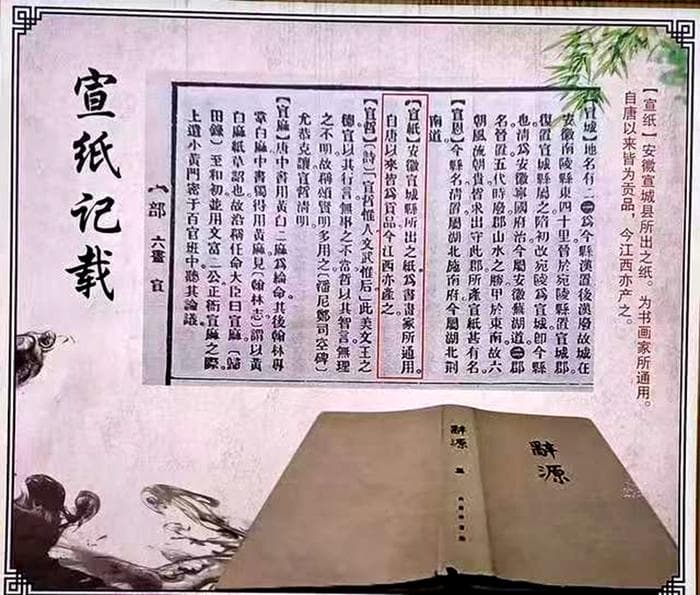 宣纸记载
【宣纸】安徽宣城县所出之纸。为书画家所通用。
自唐以来皆为贡品,今江西亦产之。
【宣城】地名有二㊀為今縣漢置後漢廢故城在
安徽南陵縣東四十里晉於宛陵縣置宣城郡
復置宣城縣屬之隋初改宛陵為宣城卽今縣
也清為安徽寧國府治今屬安徽蕪湖道㊁郡
名晉置五代時廢郡山水之勝甲於東南故六
朝風流朝貴皆求出守此郡所產宣紙甚有名
【宣恩】今縣名清置屬湖北施南府今屬湖北荆
南道
【宣紙】安徽宣城縣所出之紙為書畫家所通用
自唐以來皆為貢品今江西亦產之
【宣哲】〔詩〕「宣哲惟人文武惟后」此美文王之
德宣以其行言無事之不當哲以其智言無理
之不明故稱頌賢明多用之〔潘尼鄭司空碑〕
允恭克讓宣哲清明
【宣麻】唐中書用黃白二麻為綸命其後翰林專
掌白麻中書獨得用黃麻見〔翰林志〕謂以黃
白麻紙草詔也故沿稱任命大臣曰宣麻〔歸
田錄〕至和初並用文富二公正衙宣麻之際
上遣小黃門密于百官班中聽其論議。
宀部 六畫 宣
辭源
辭源